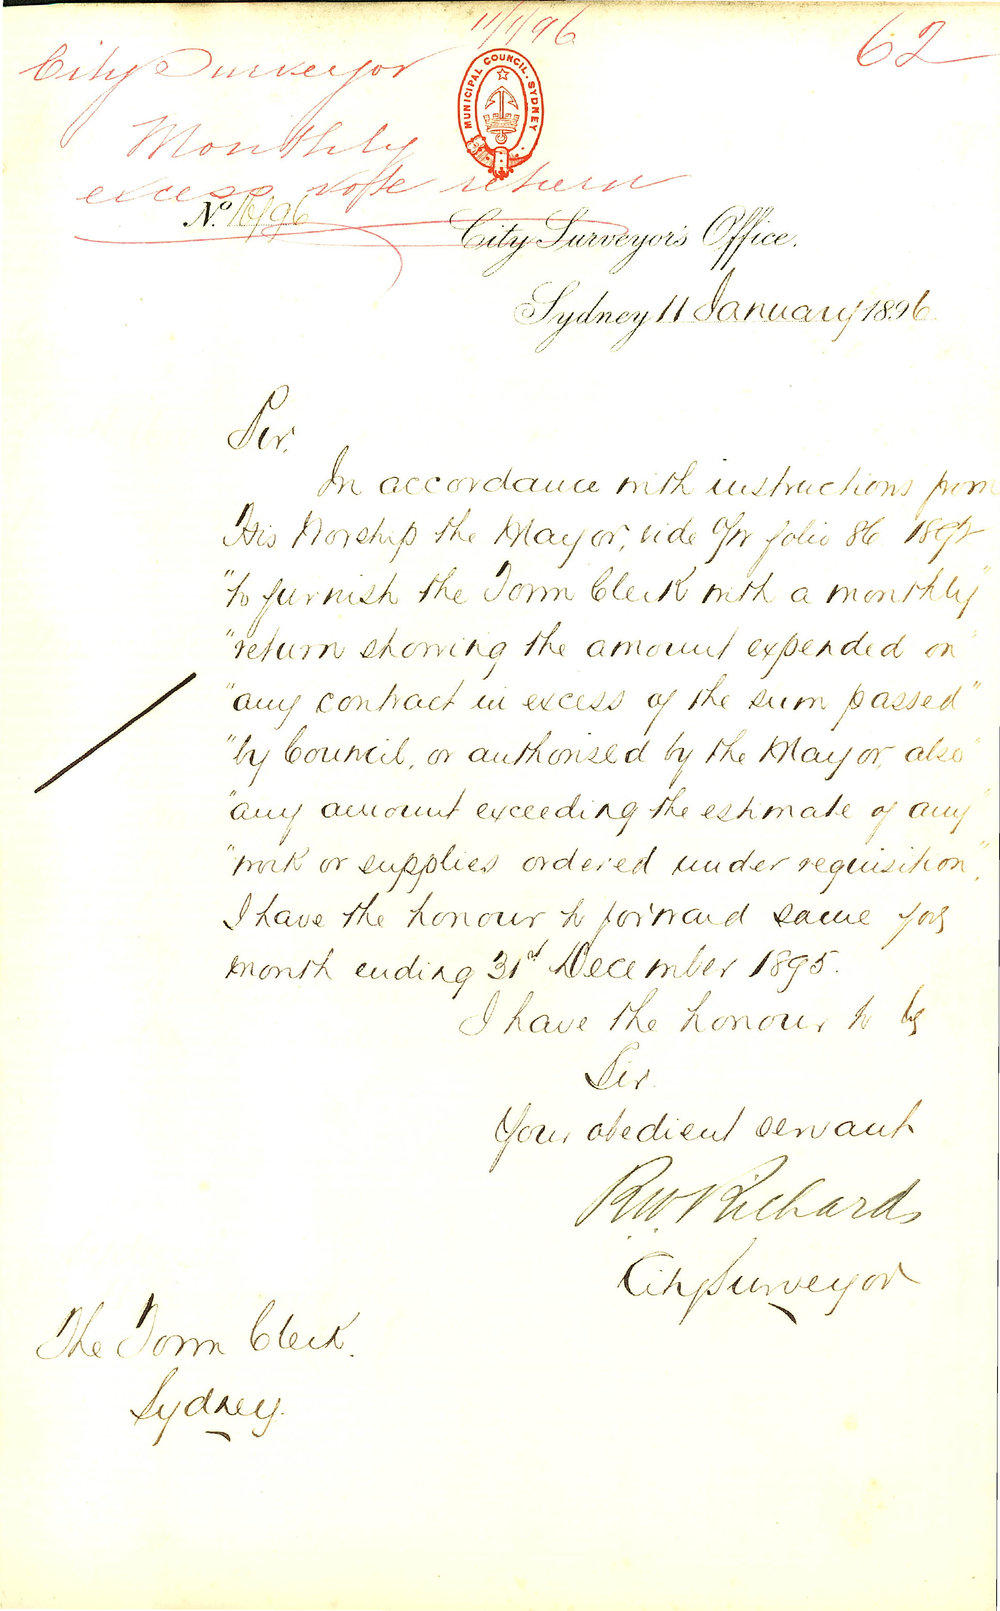 11/1/96
62
City Surveyor
MUNICIPAL COUNCIL. SYDNEY
Monthly
excess vote return
No. 16/96
City Surveyor's Office.
Sydney 11 January 1896
Sir.
In accordance with instructions from
His Worship the Mayor, vide folio 86 1892
"to furnish the Town Clerk with a monthly"
"return showing the amount expended on"
"any contract in excess of the sum passed"
"by Council, or authorised by the Mayor, also"
"any amount exceeding the estimate of any"
"work or supplies ordered under requisition".
I have the honour to forward same for
month ending 31st December 1895.
I have the honour to be
Sir.
Your obedient servant
R.W. Richards
City Surveyor
The Town Clerk.
Sydney.